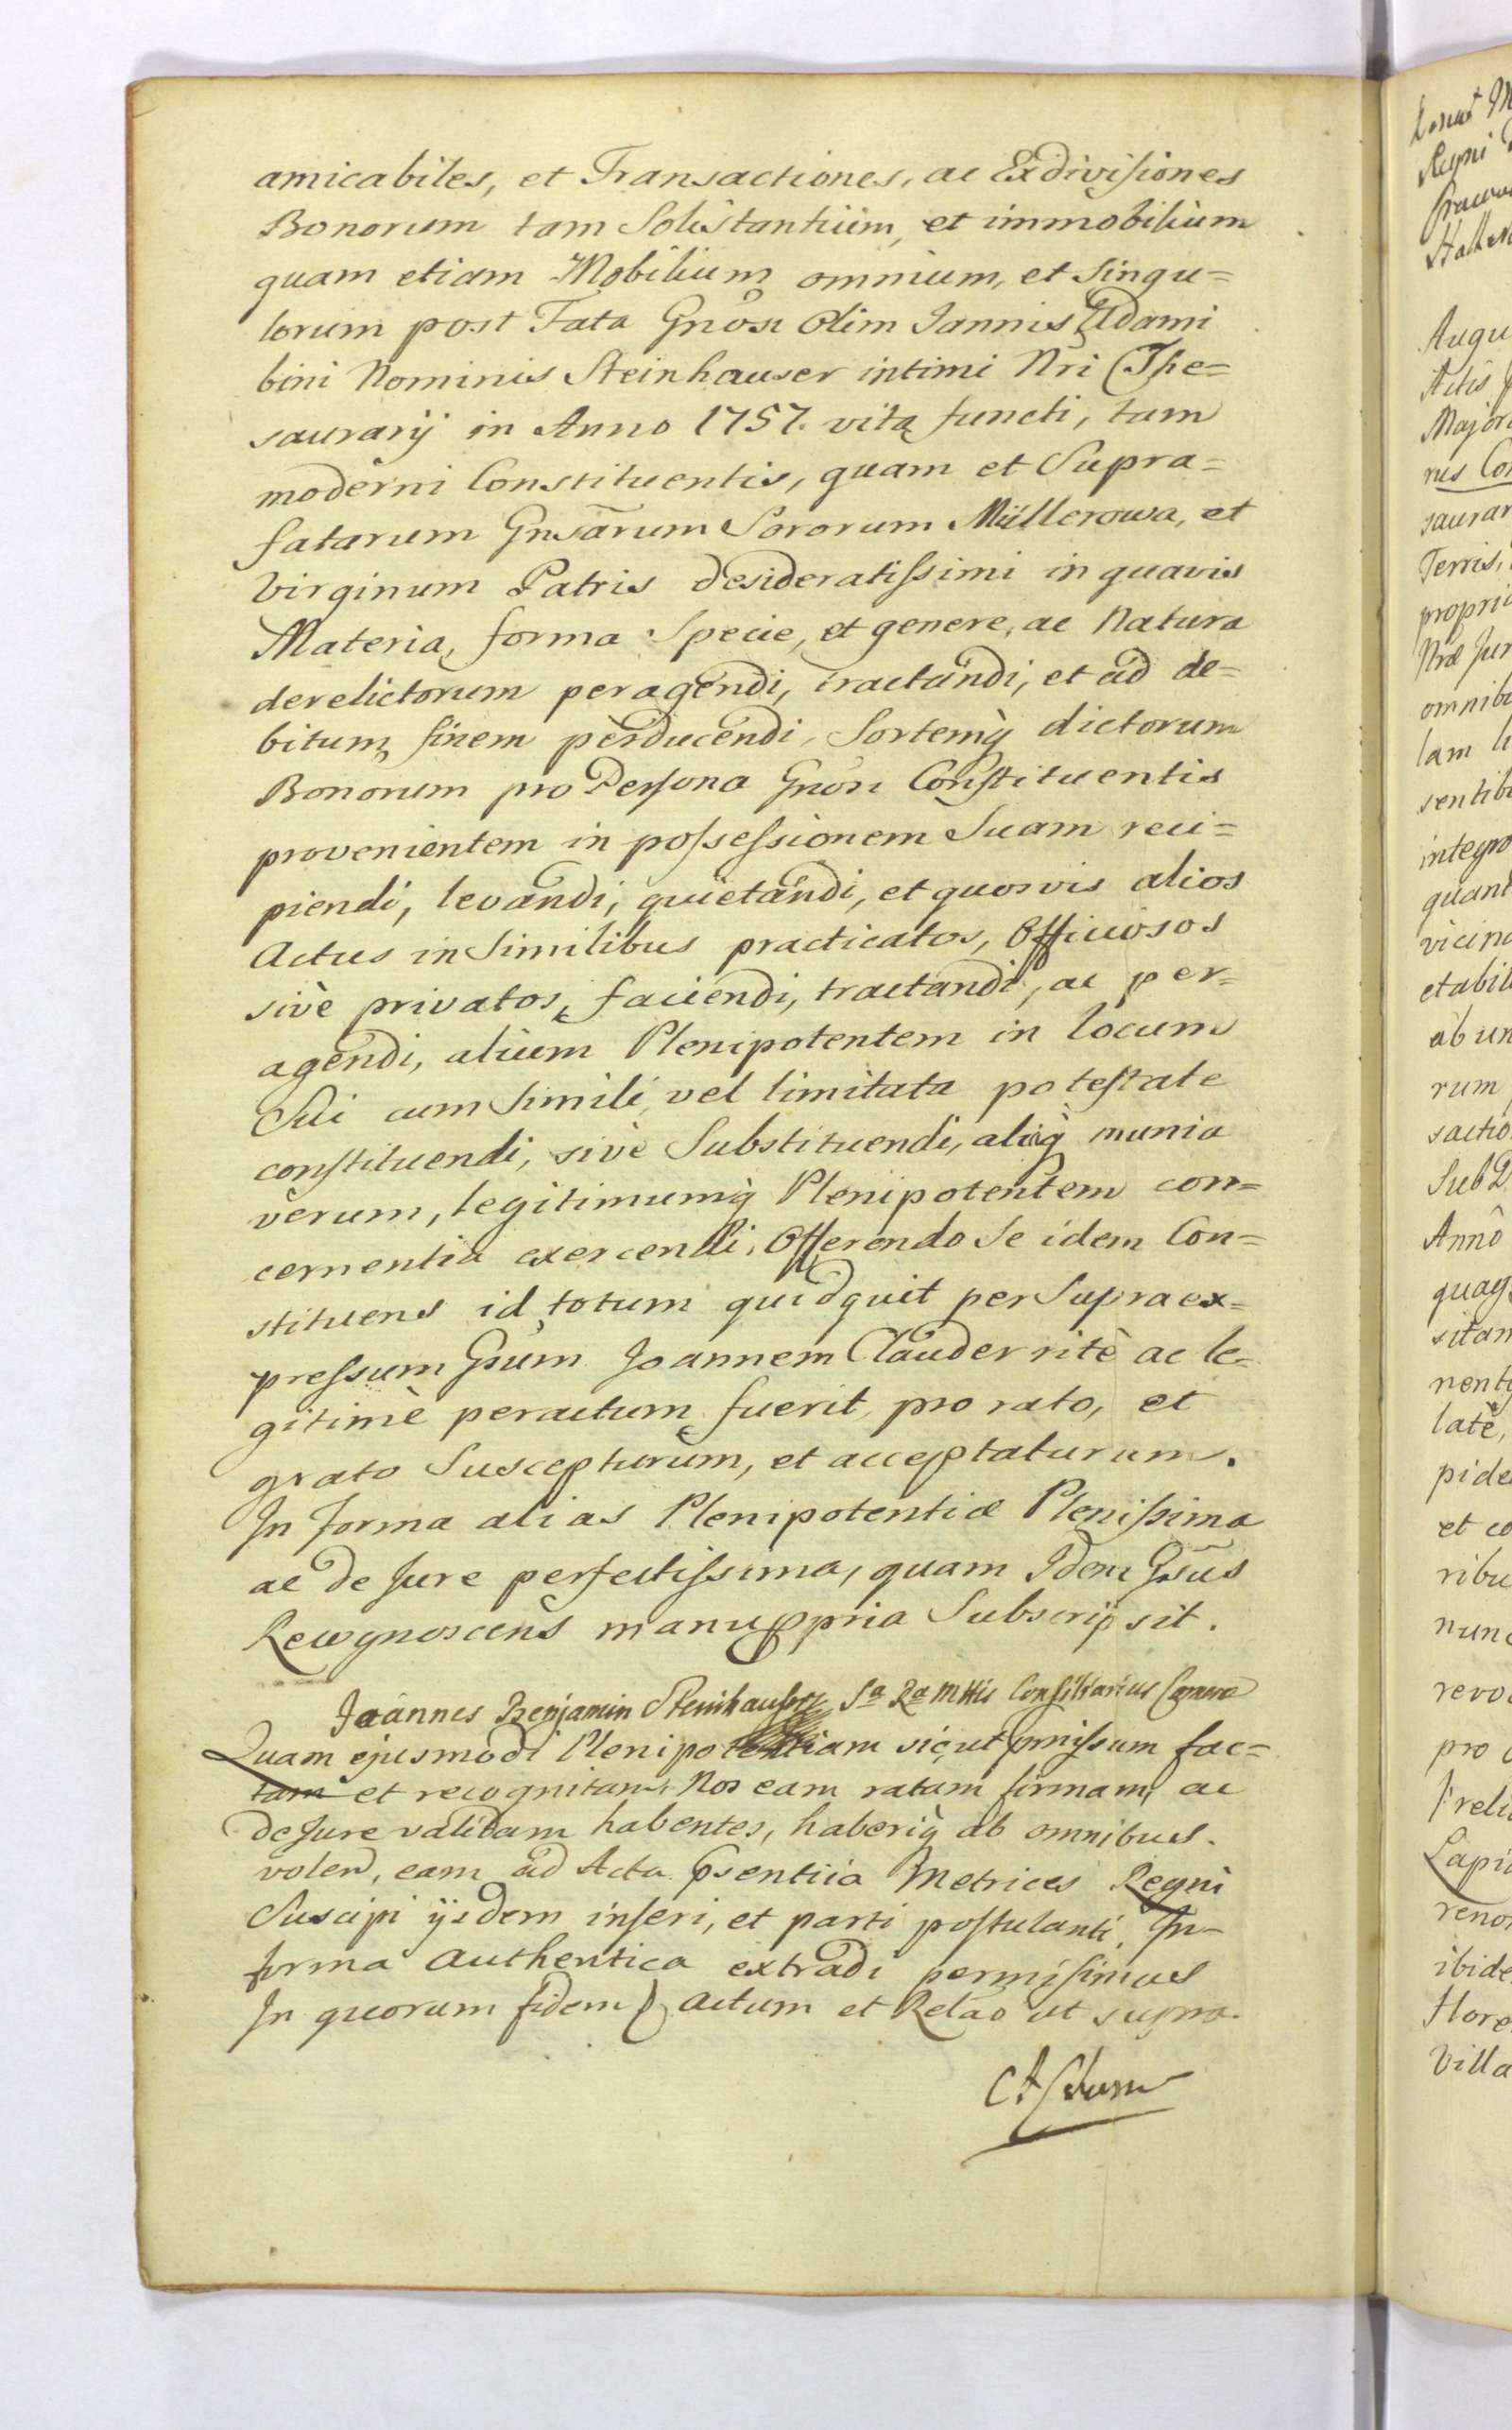 amicabiles, et Transactiones, ac Exdivisiones
Bonorum tam Solistantium, et immobilium
quam etiam Mobilium omnium, et singu=
lorum post Fata Gnosi Olim Jannis Adami
bini Nominis Steinhauser intimi Nri The=
saurarij in Anno 1757. vita functi, tam
moderni Constituentis, quam et Supra=
fatarum Gnsarum Sororum Müllerowa, et
Virginum Patris desideratissimi in quavis
Materia, forma Specie, et genere, ac Natura
derelictorum peragendi, tractandi, et ad de=
bitum finem perducendi, Sortemq dictorum
Bonorum pro Persona Gnosi Constituentis
provenientem in possessionem Suam reci=
piendi, levandi, quietandi, et quosvis alios
Actus in Similibus practicatos, Officiosos
sivè privatos, faciendi, tractandi, ac per=
agendi, alium Plenipotentem in locum
Sui cum simili, vel limitata potestate
constituendi, sivè Substituendi, aliaq munia
verum, legitimumq Plenipotentem con=
cernentia exercendi, Offerendo Se idem Con=
stituens id totum quidquit per Supra ex=
pressum Gsum Joannem Clauder ritè ac le=
gitimè peractum fuerit, pro rato, et
grato Suscepturum, et acceptaturum.
In Forma alias Plenipotentiæ Plenissima
ac de Jure perfectissima, quam Idem Gsus
Recognoscens manu ppria Subscripsit.
Joannes Benjamin Steinhauser Sa Ra Mttis Consiliarius
Quam ejusmodi Plenipotentiam sicut pmissum fac=
tam et recognitam, Nos eam ratam firmam, ac
de Jure validam habentes, haberiq ab omnibus
volen, eam ad Acta psentiia Metrices Regni
Suscipi ijsdem inseri, et parti postulanti In
forma authentica extradi permisimus
In quorum fidem Actum et Relao ut supra.